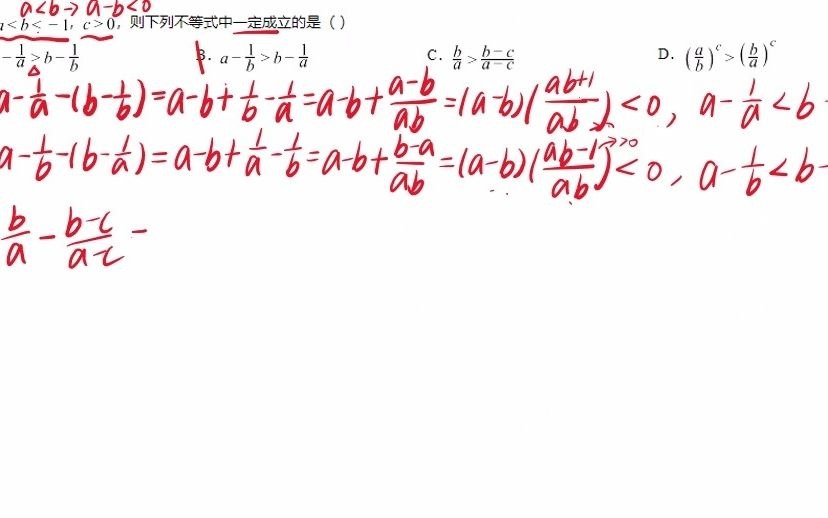 a<b→a-b<0
a<b<-1, c>0, 则下列不等式中一定成立的是（ ）
-1/a>b-1/b B. a-1/b>b-1/a C. b/a>(b-c)/(a-c) D. (a/b)^c>(b/a)^c
a-1/a-(b-1/b)=a-b+1/b-1/a=a-b+(a-b)/ab=(a-b)((ab+1)/ab)<0, a-1/a<b-
a-1/b-(b-1/a)=a-b+1/a-1/b=a-b+(b-a)/ab=(a-b)((ab-1)/ab)<0, a-1/b<b- →>0
b/a-(b-c)/(a-c)-